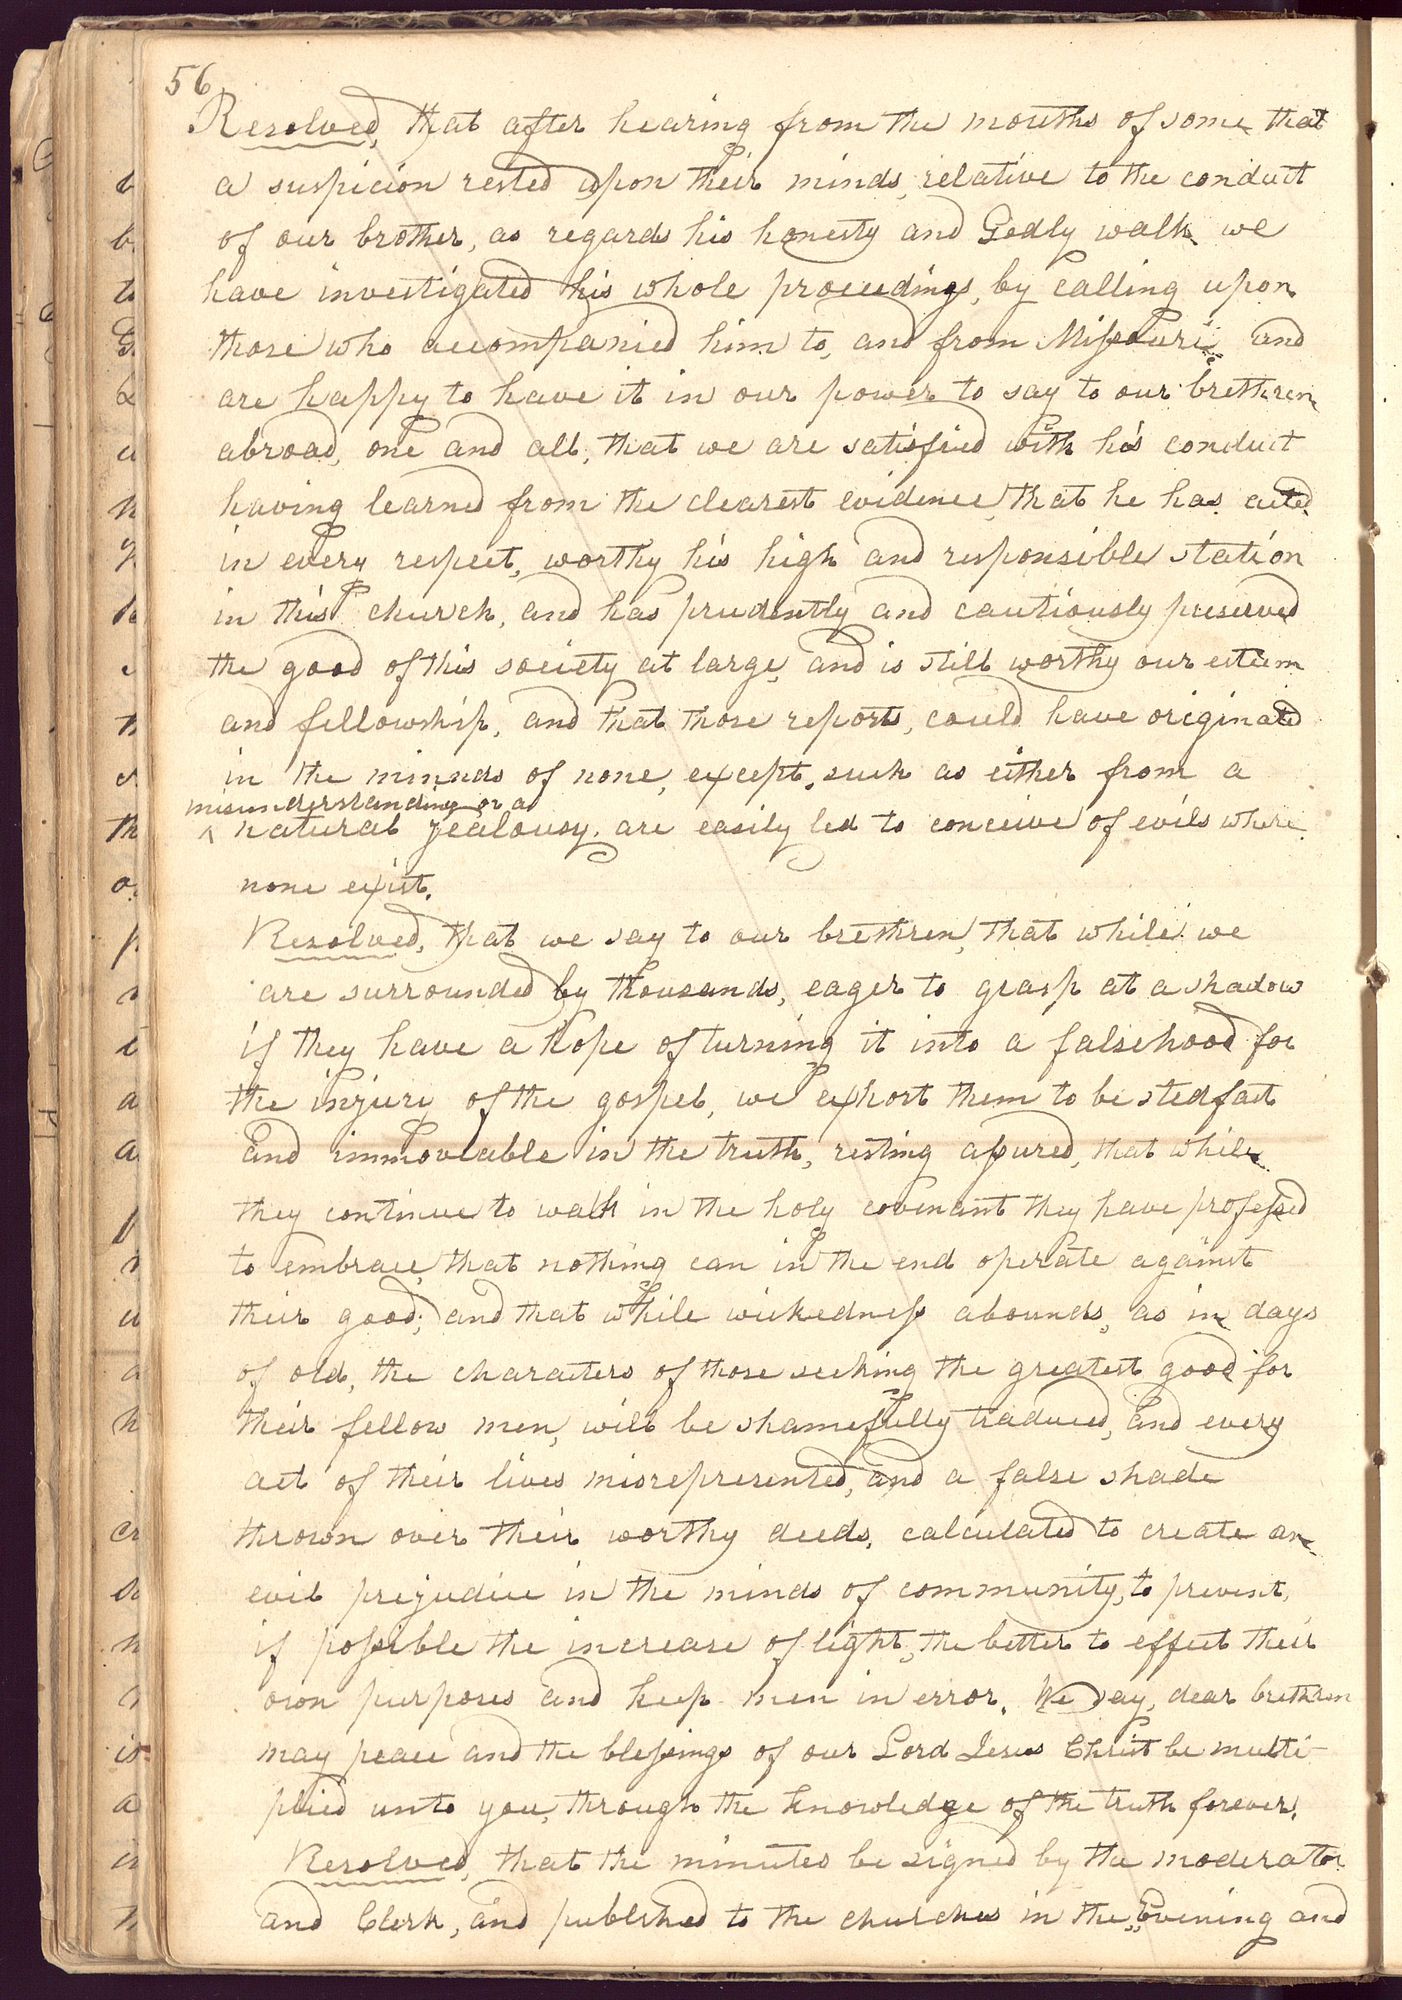 56
Resolved, that after hearing from the mouths of some that
a suspicion rested upon their minds, relative to the conduct
of our brother, as regards his honesty and Godly walk we
have investigated his whole proceedings, by calling upon
those who accompanied him to, and from Missouri, and
are happy to have it in our power to say to our brethren
abroad, one and all, that we are satisfied with his conduct
having learned from the clearest evidence, that he has acted
in every respect, worthy his high and responsible station
in this church, and has prudently and cautiously preserved
the good of this society at large, and is still worthy our esteem
and fellowship, and that those reports, could have originated
in the minnds of none, except, such as either from a
misunderstanding or a
^ natural jealousy, are easily led to conceive of evils where
none exist.
Resolved, that we say to our brethren, that while we
are surrounded by thousands, eager to grasp at a shadow
if they have a hope of turning it into a falsehood for
the injury of the gospel, we exhort them to be stedfast
and immoveable in the truth, resting assured, that while
they continue to walk in the holy covenant they have professed
to embrace, that nothing can in the end operate against
their good; and that while wickedness abounds, as in days
of old, the characters of those seeking the greatest good for
their fellow men, will be shamefully traduced, and every
act of their lives misrepresented, and a false shade
thrown over their worthy deeds, calculated to create an
evil prejudice in the minds of community, to prevent,
if possible the increase of light, the better to effect their
own purposes and keep men in error. We say, dear brethren
may peace and the blessings of our Lord Jesus Christ be multi-
plied unto you, through the knowledge of the truth forever.
Resolved, that the minutes be signed by the moderator
and Clerk, and published to the churches in the "Evening and